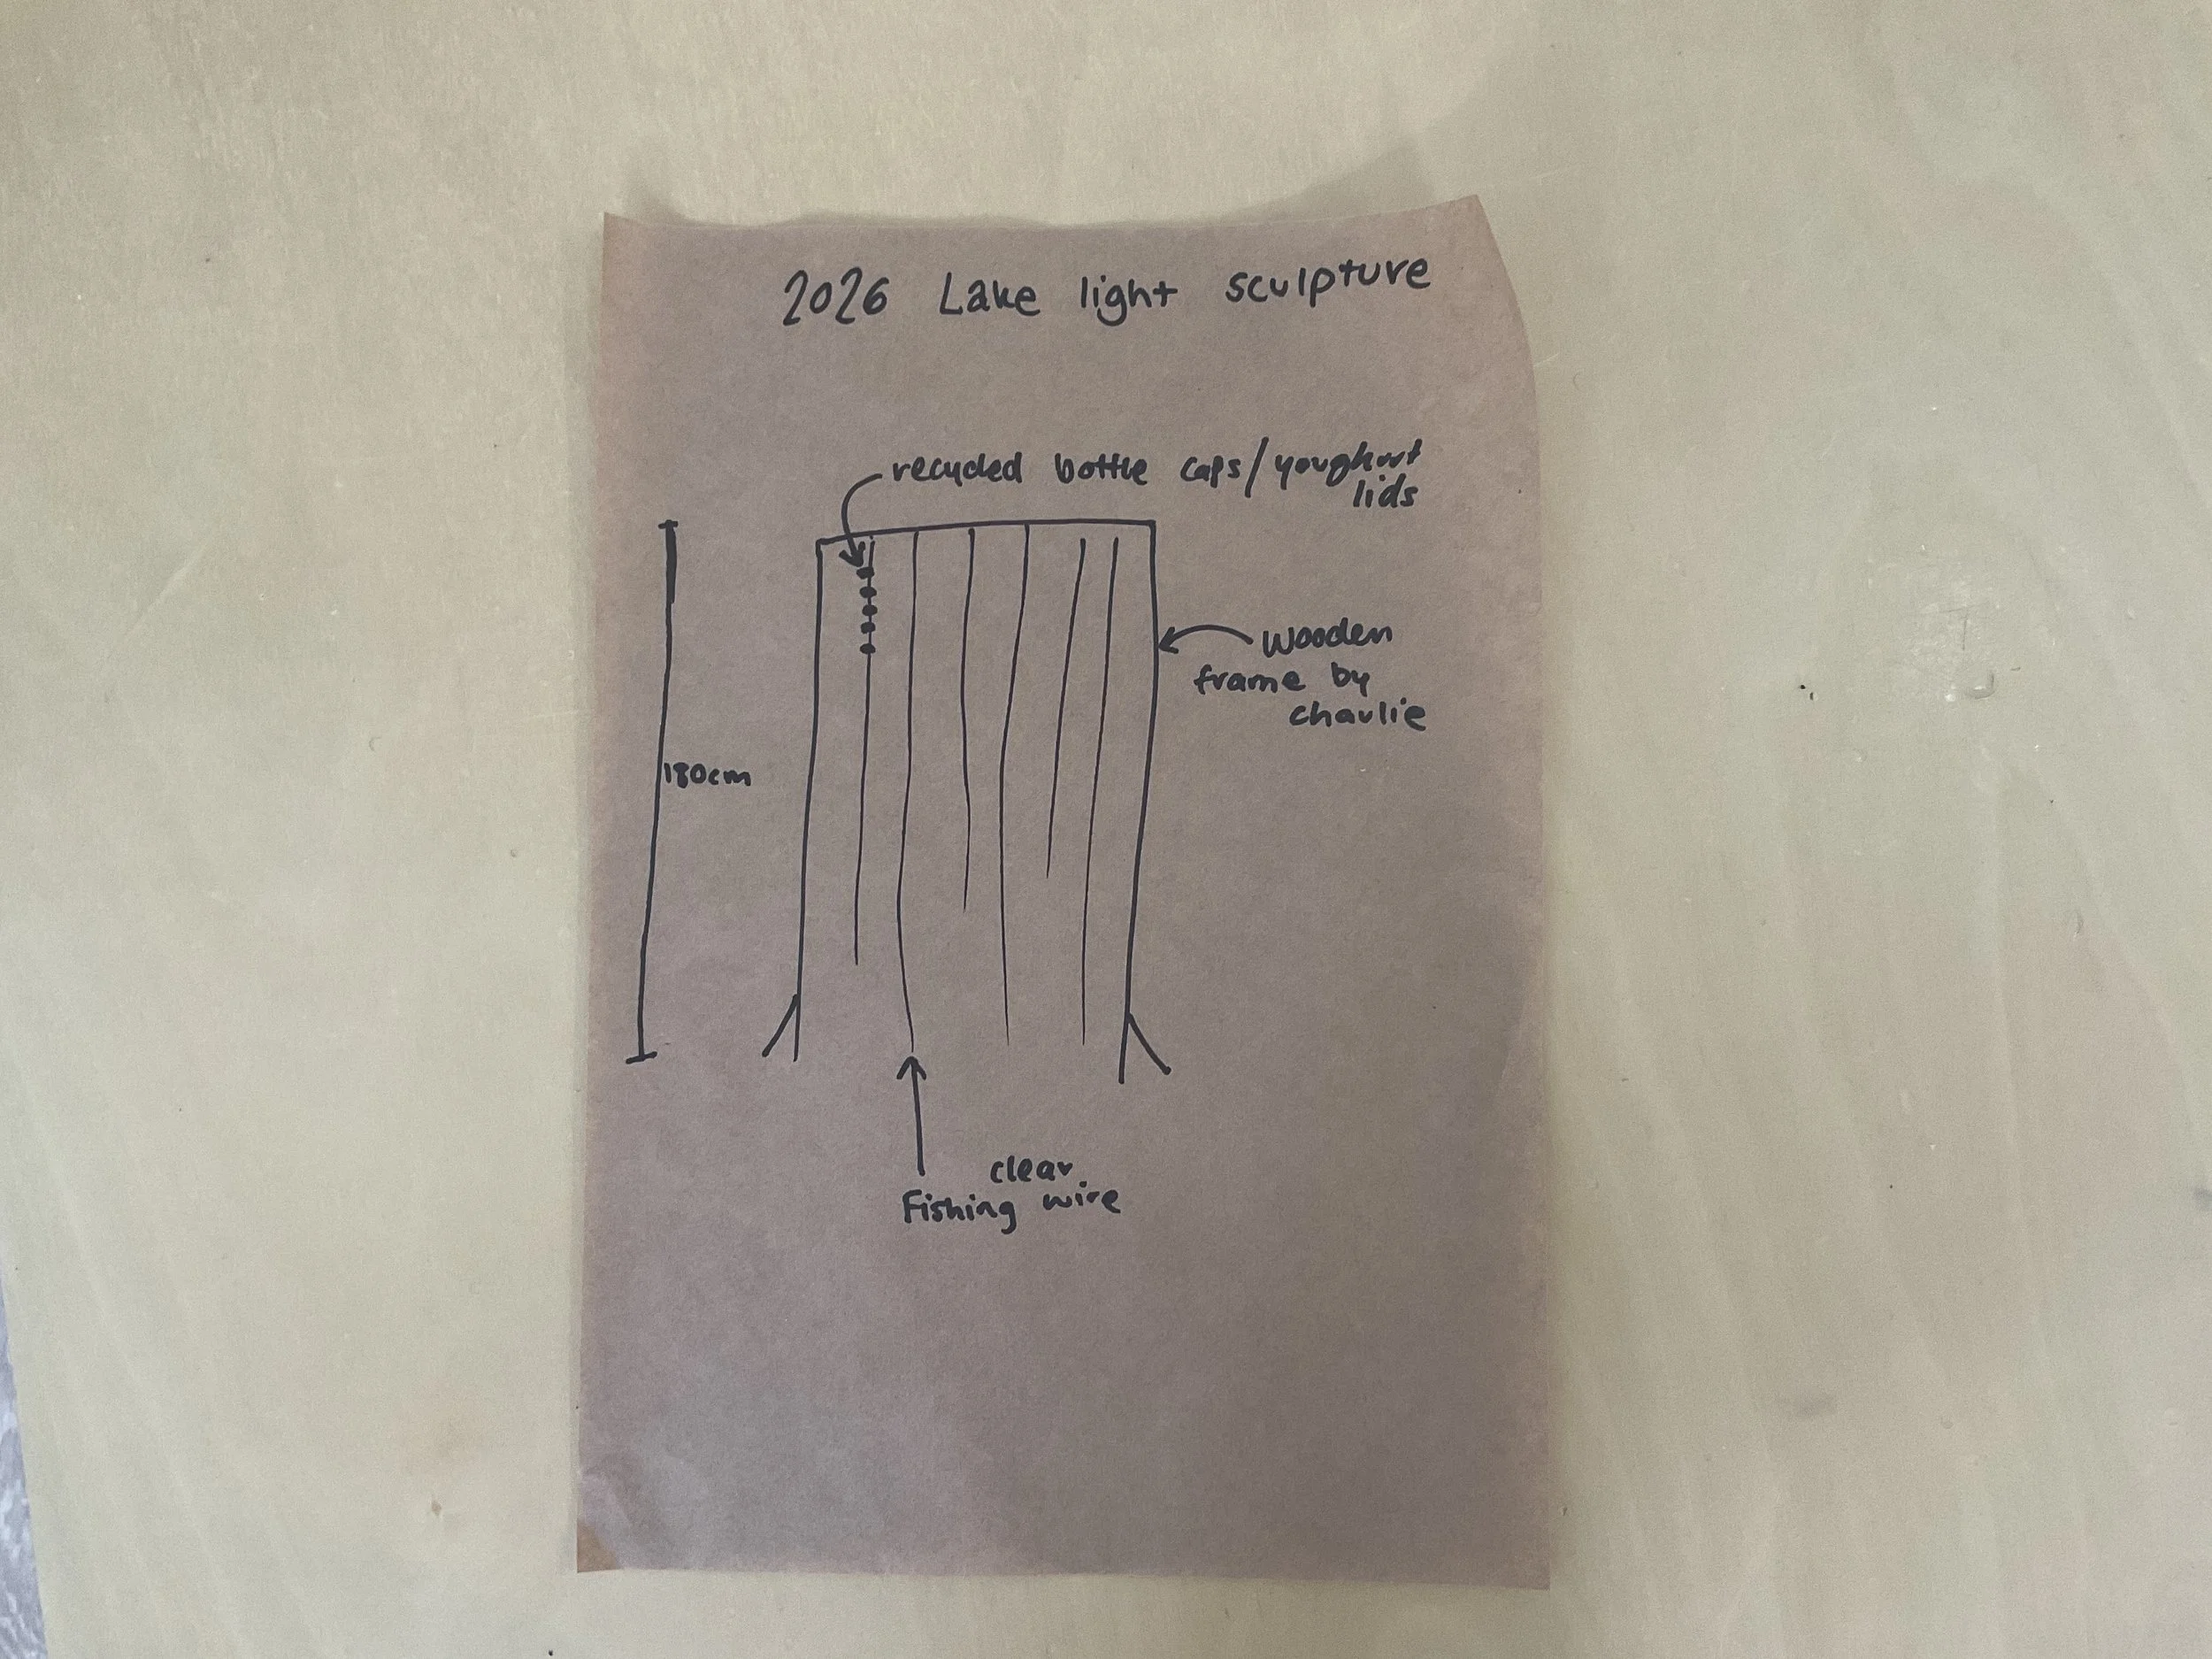 2026 Lake light sculpture
recycled bottle caps/youghurt
lids
Wooden
frame by
charlie
180cm
clear
Fishing wire